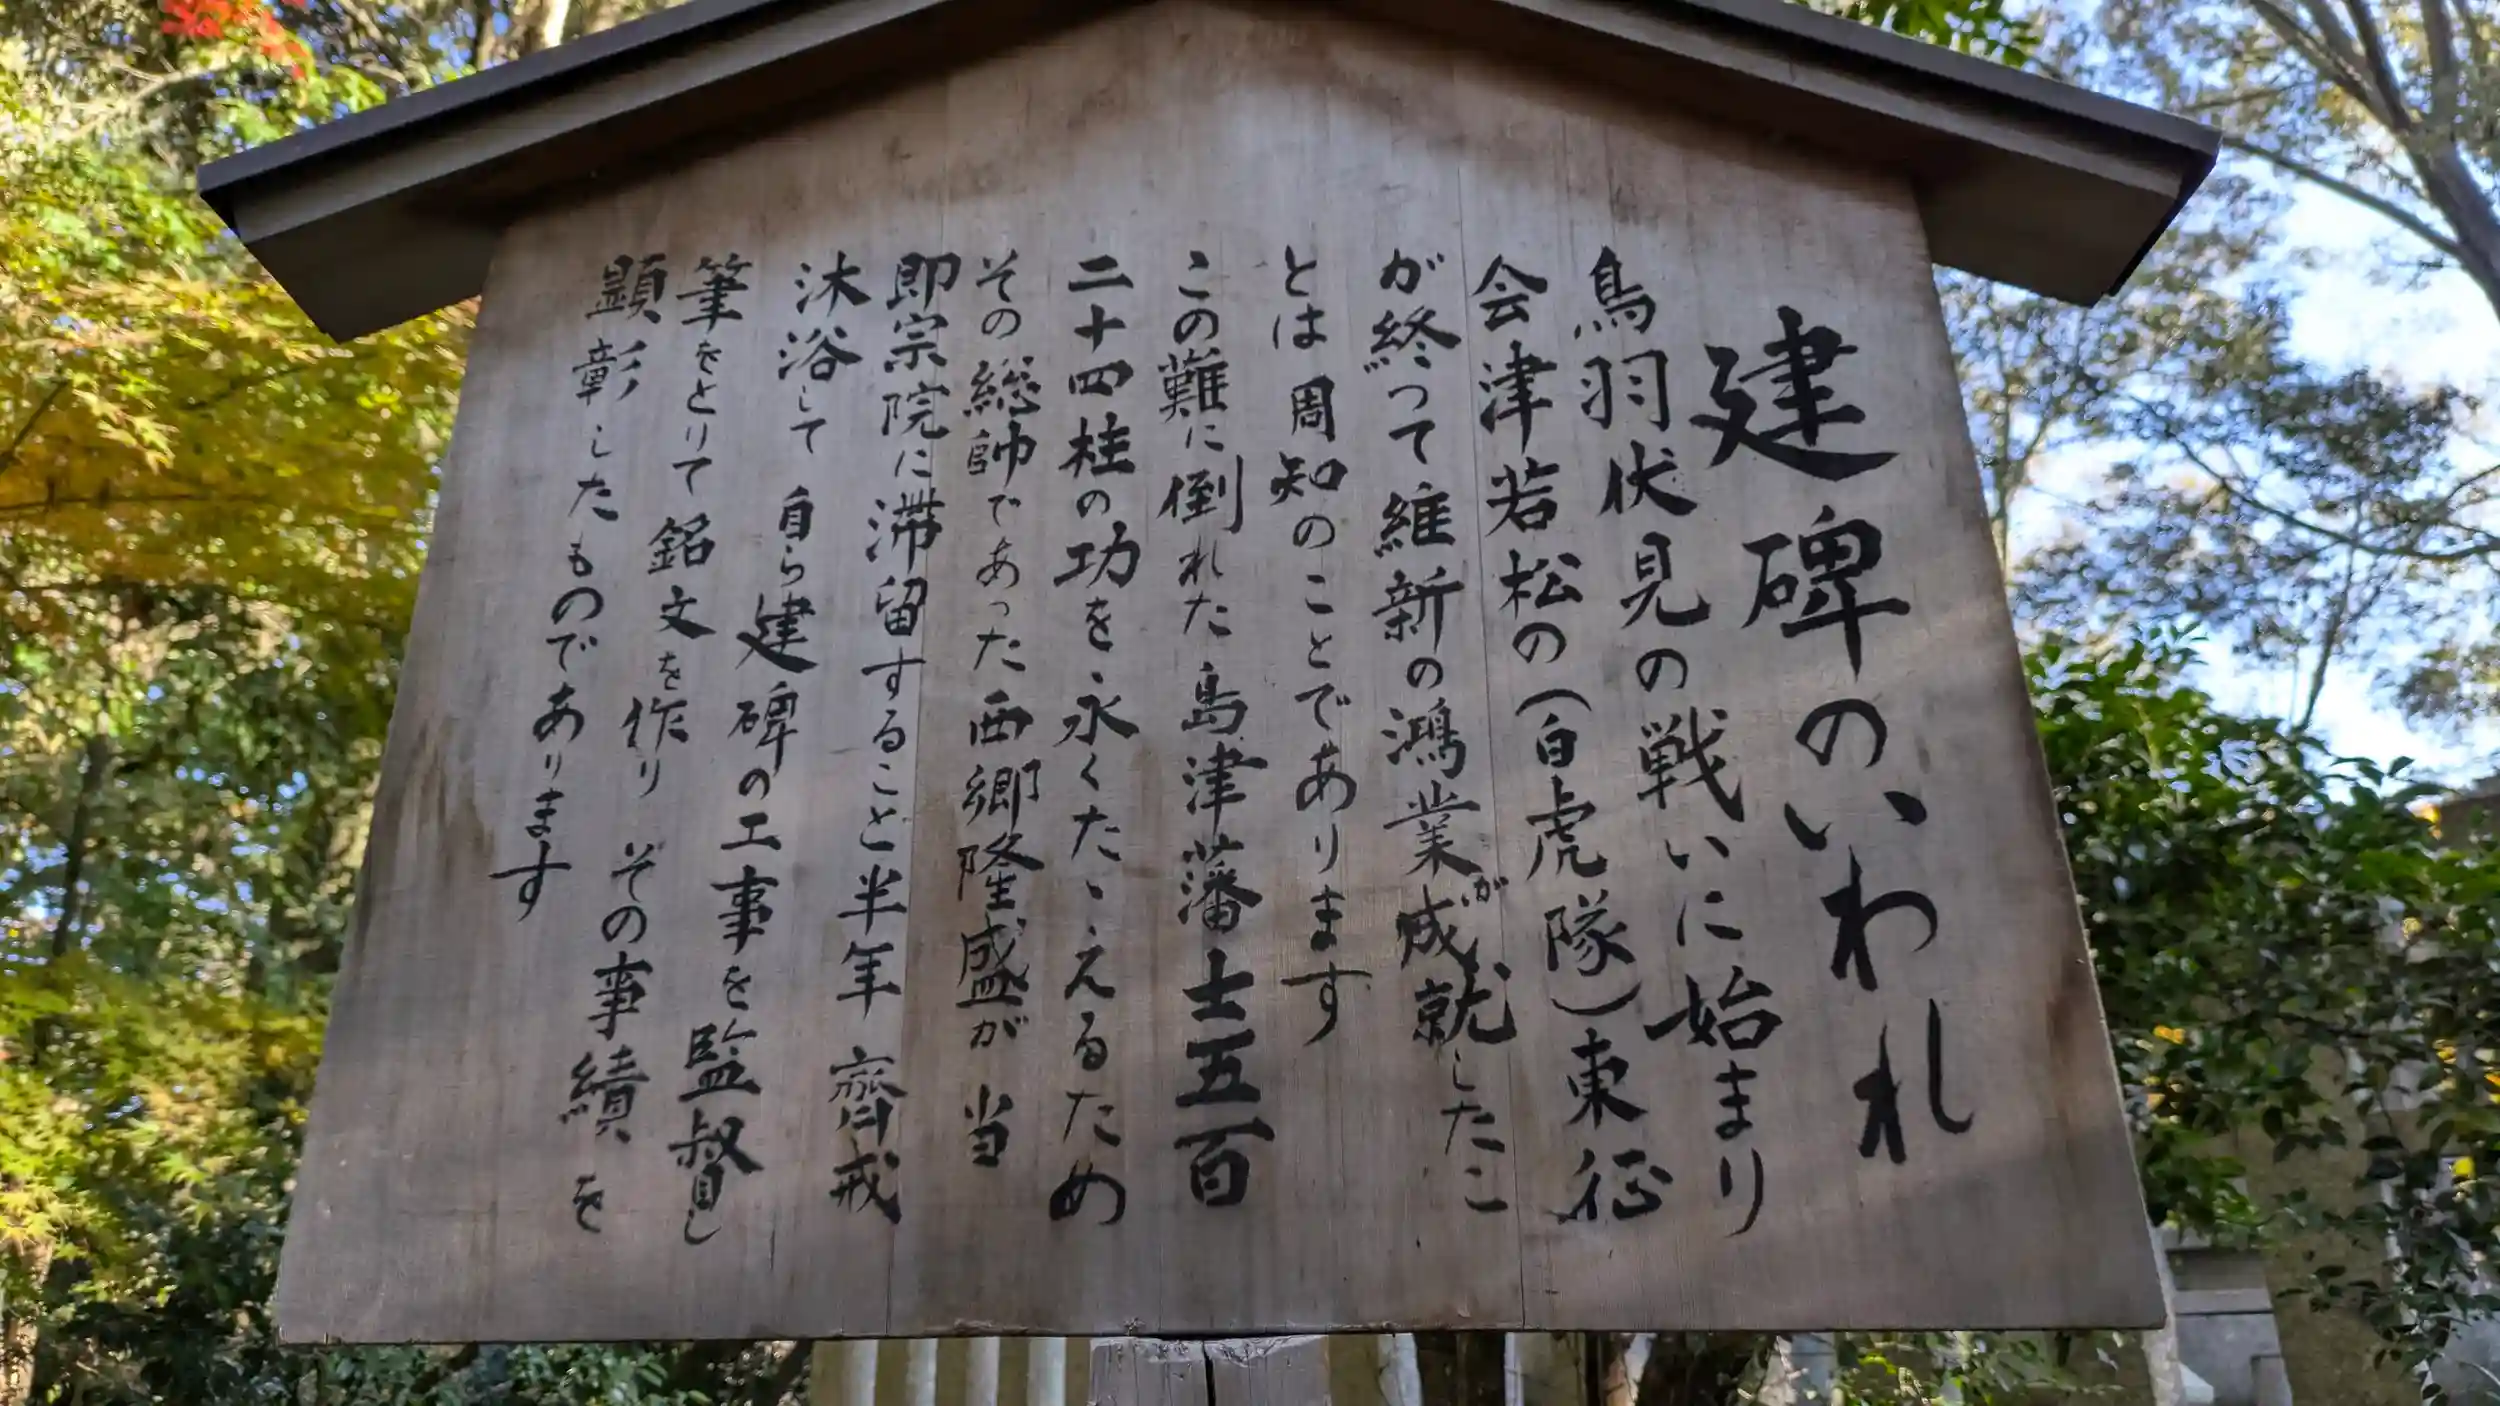 建碑のいわれ
鳥羽伏見の戦いに始まり
会津若松の（白虎隊）東征
が終って維新の鴻業が成就したこ
とは周知のことであります
この難に倒れた島津藩士五百
二十四柱の功を永くたゝえるため
その総帥であった西郷隆盛が当
即宗院に滞留すること半年 齋戒
沐浴して 自ら建碑の工事を監督し
筆をとりて銘文を作り その事績を
顕彰したものであります